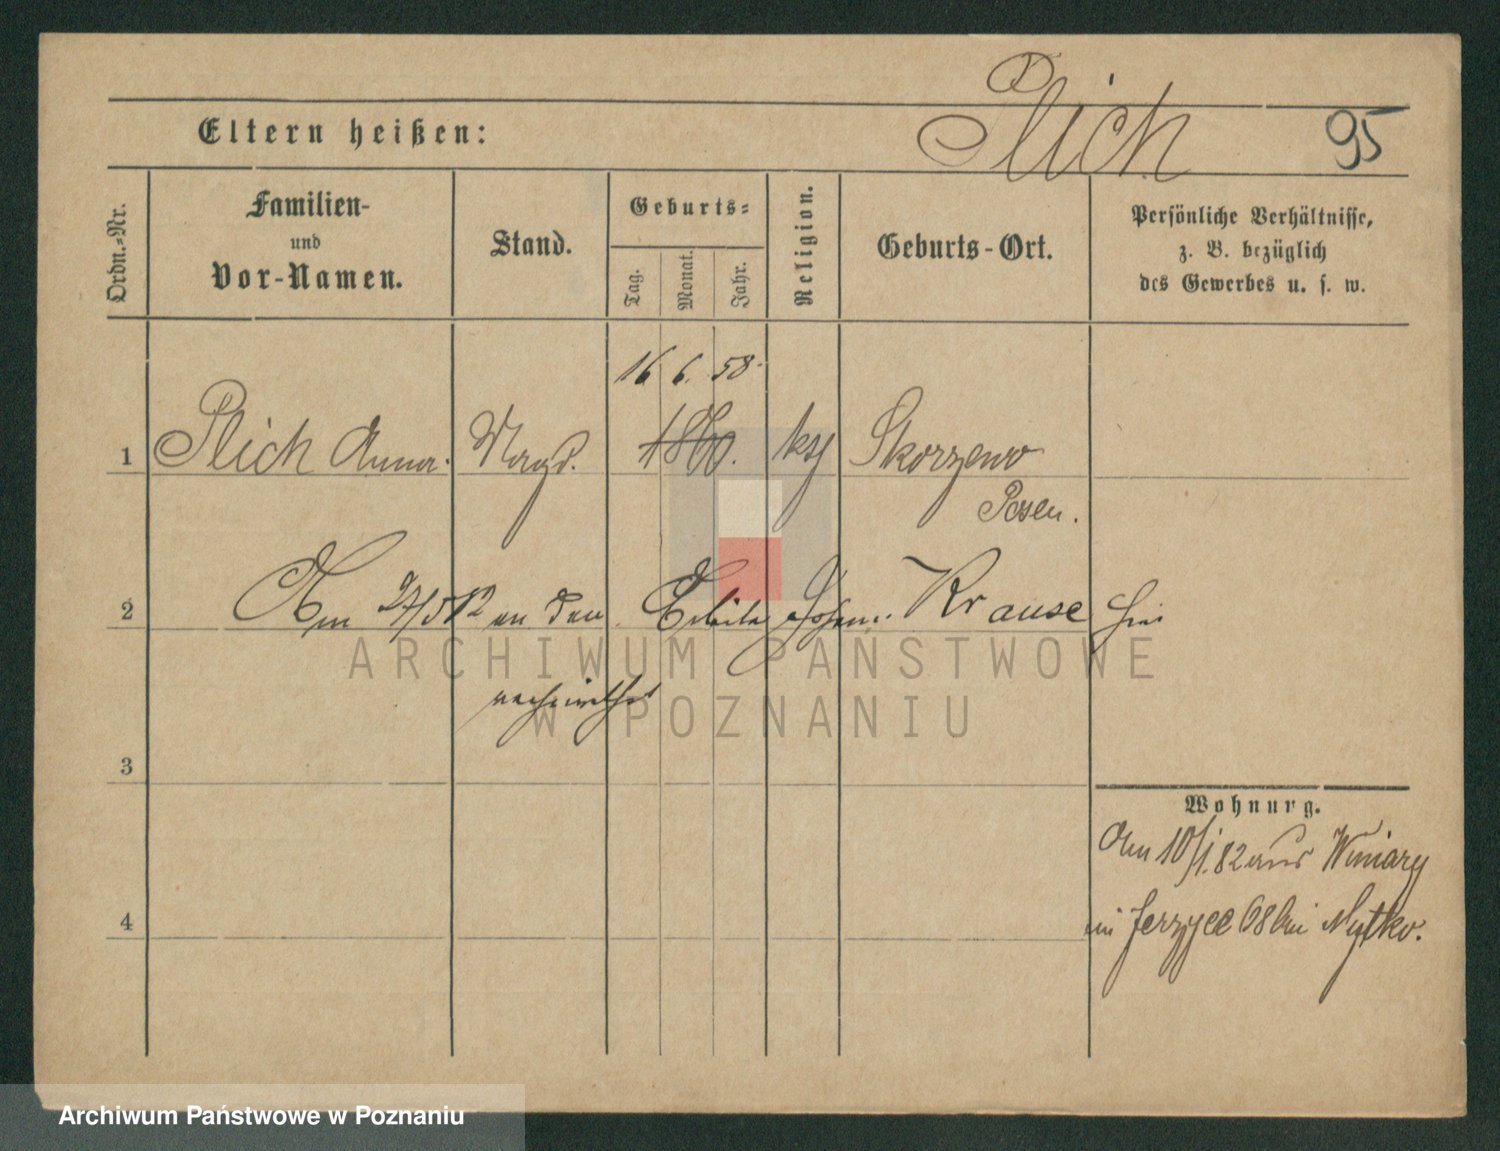 Plich 95
Eltern heißen:
Ordn.-Nr.
Familien-
und
Vor-Namen.
Stand.
Geburts-
Tag.
Monat.
Jahr.
Religion.
Geburts-Ort.
Persönliche Verhältnisse,
z. B. bezüglich
des Gewerbes u. s. w.
16 6. 58.
1 Plich Anna. Magd. 1860. ksch Skorzewo
Posen.
2 Am 27/5 82 an den Arbeiter Johann Krause hier
verheirathet
3
Wohnung.
Am 10/1.82 aus Winiary
in Jerzyce 68 bei
4
ARCHIWUM PAŃSTWOWE
W POZNANIU
Archiwum Państwowe w Poznaniu